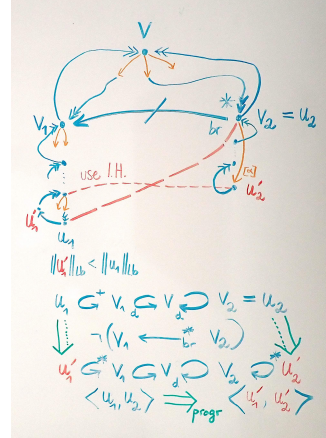 V
*
V₁ br V₂ = u₂
[α]
use I.H.
u₁' u₂'
u₁
‖u₁'‖Lb < ‖u₁‖Lb
u₁ ↷⁺ V₁ d↷ V d↷ V₂ = u₂
¬(V₁ ←br** V₂)
u₁' ↷* V₁ d↷ V d↷ V₂ ↷* u₂'
<u₁, u₂> ⇒progr <u₁', u₂'>